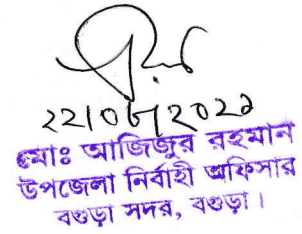 ২২/০৮/২০২১
মোঃ আজিজুর রহমান
উপজেলা নির্বাহী অফিসার
বগুড়া সদর, বগুড়া।